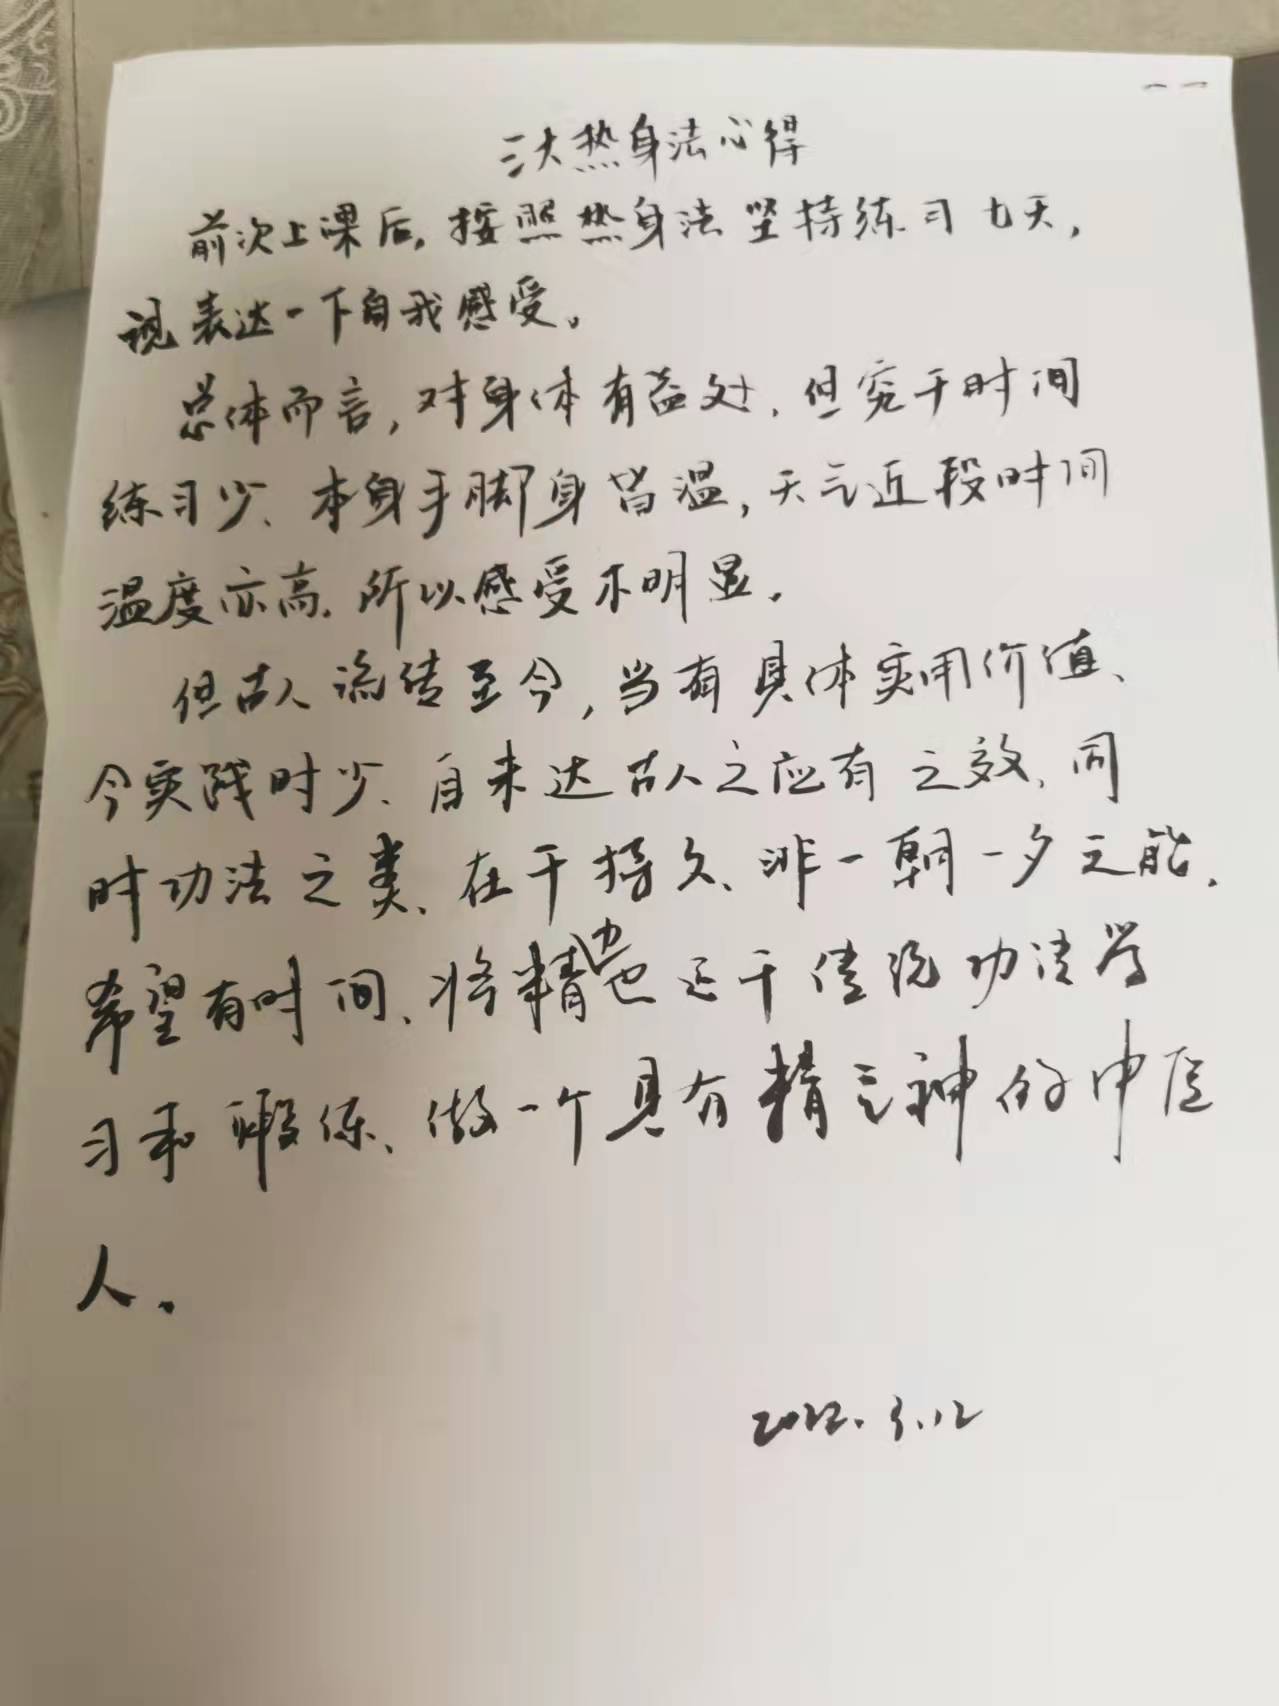 三大热身法心得
前次上课后,按照热身法坚持练习七天,
现表达一下自我感受。
总体而言,对身体有益处,但究于时间
练习少、本身手脚身皆温,天气近段时间
温度亦高.所以感受不明显.
但古人流传至今,当有具体实用价值、
今实践时少、自未达古人之应有之效,同
时功法之类、在于持久、非一朝一夕之能.
希望有时间、将精力也 于传统功法学
习和 练、做一个具有精气神的中医
人。
2022.3.12